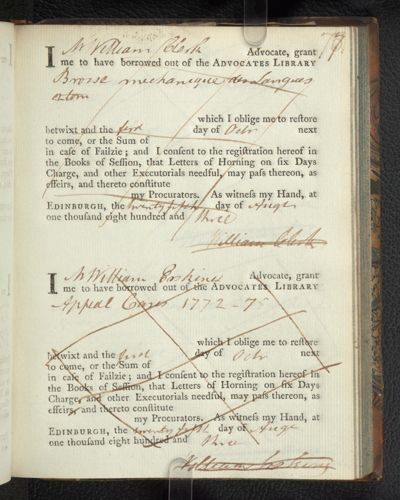 77.
I Mr William Clerk Advocate, grant
me to have borrowed out of the ADVOCATES LIBRARY
Brosse mechanique des Langues
2 tom
which I oblige me to reſtore
betwixt and the first day of Octr next
to come, or the Sum of
in caſe of Failzie; and I conſent to the regiſtration hereof in
the Books of Seſſion, that Letters of Horning on ſix Days
Charge, and other Executorials needful, may paſs thereon, as
effeirs, and thereto conſtitute
my Procurators. As witneſs my Hand, at
EDINBURGH, the twenty fifth day of Augt
one thouſand eight hundred and three
William Clerk
I Mr William Erskine Advocate, grant
me to have borrowed out of the ADVOCATES LIBRARY
Appeal Cases 1772-75
which I oblige me to reſtore
betwixt and the first day of Octr next
to come, or the Sum of
in caſe of Failzie; and I conſent to the regiſtration hereof in
the Books of Seſſion, that Letters of Horning on ſix Days
Charge, and other Executorials needful, may paſs thereon, as
effeirs, and thereto conſtitute
my Procurators. As witneſs my Hand, at
EDINBURGH, the twenty fifth day of Augt
one thouſand eight hundred and three
William Erskine